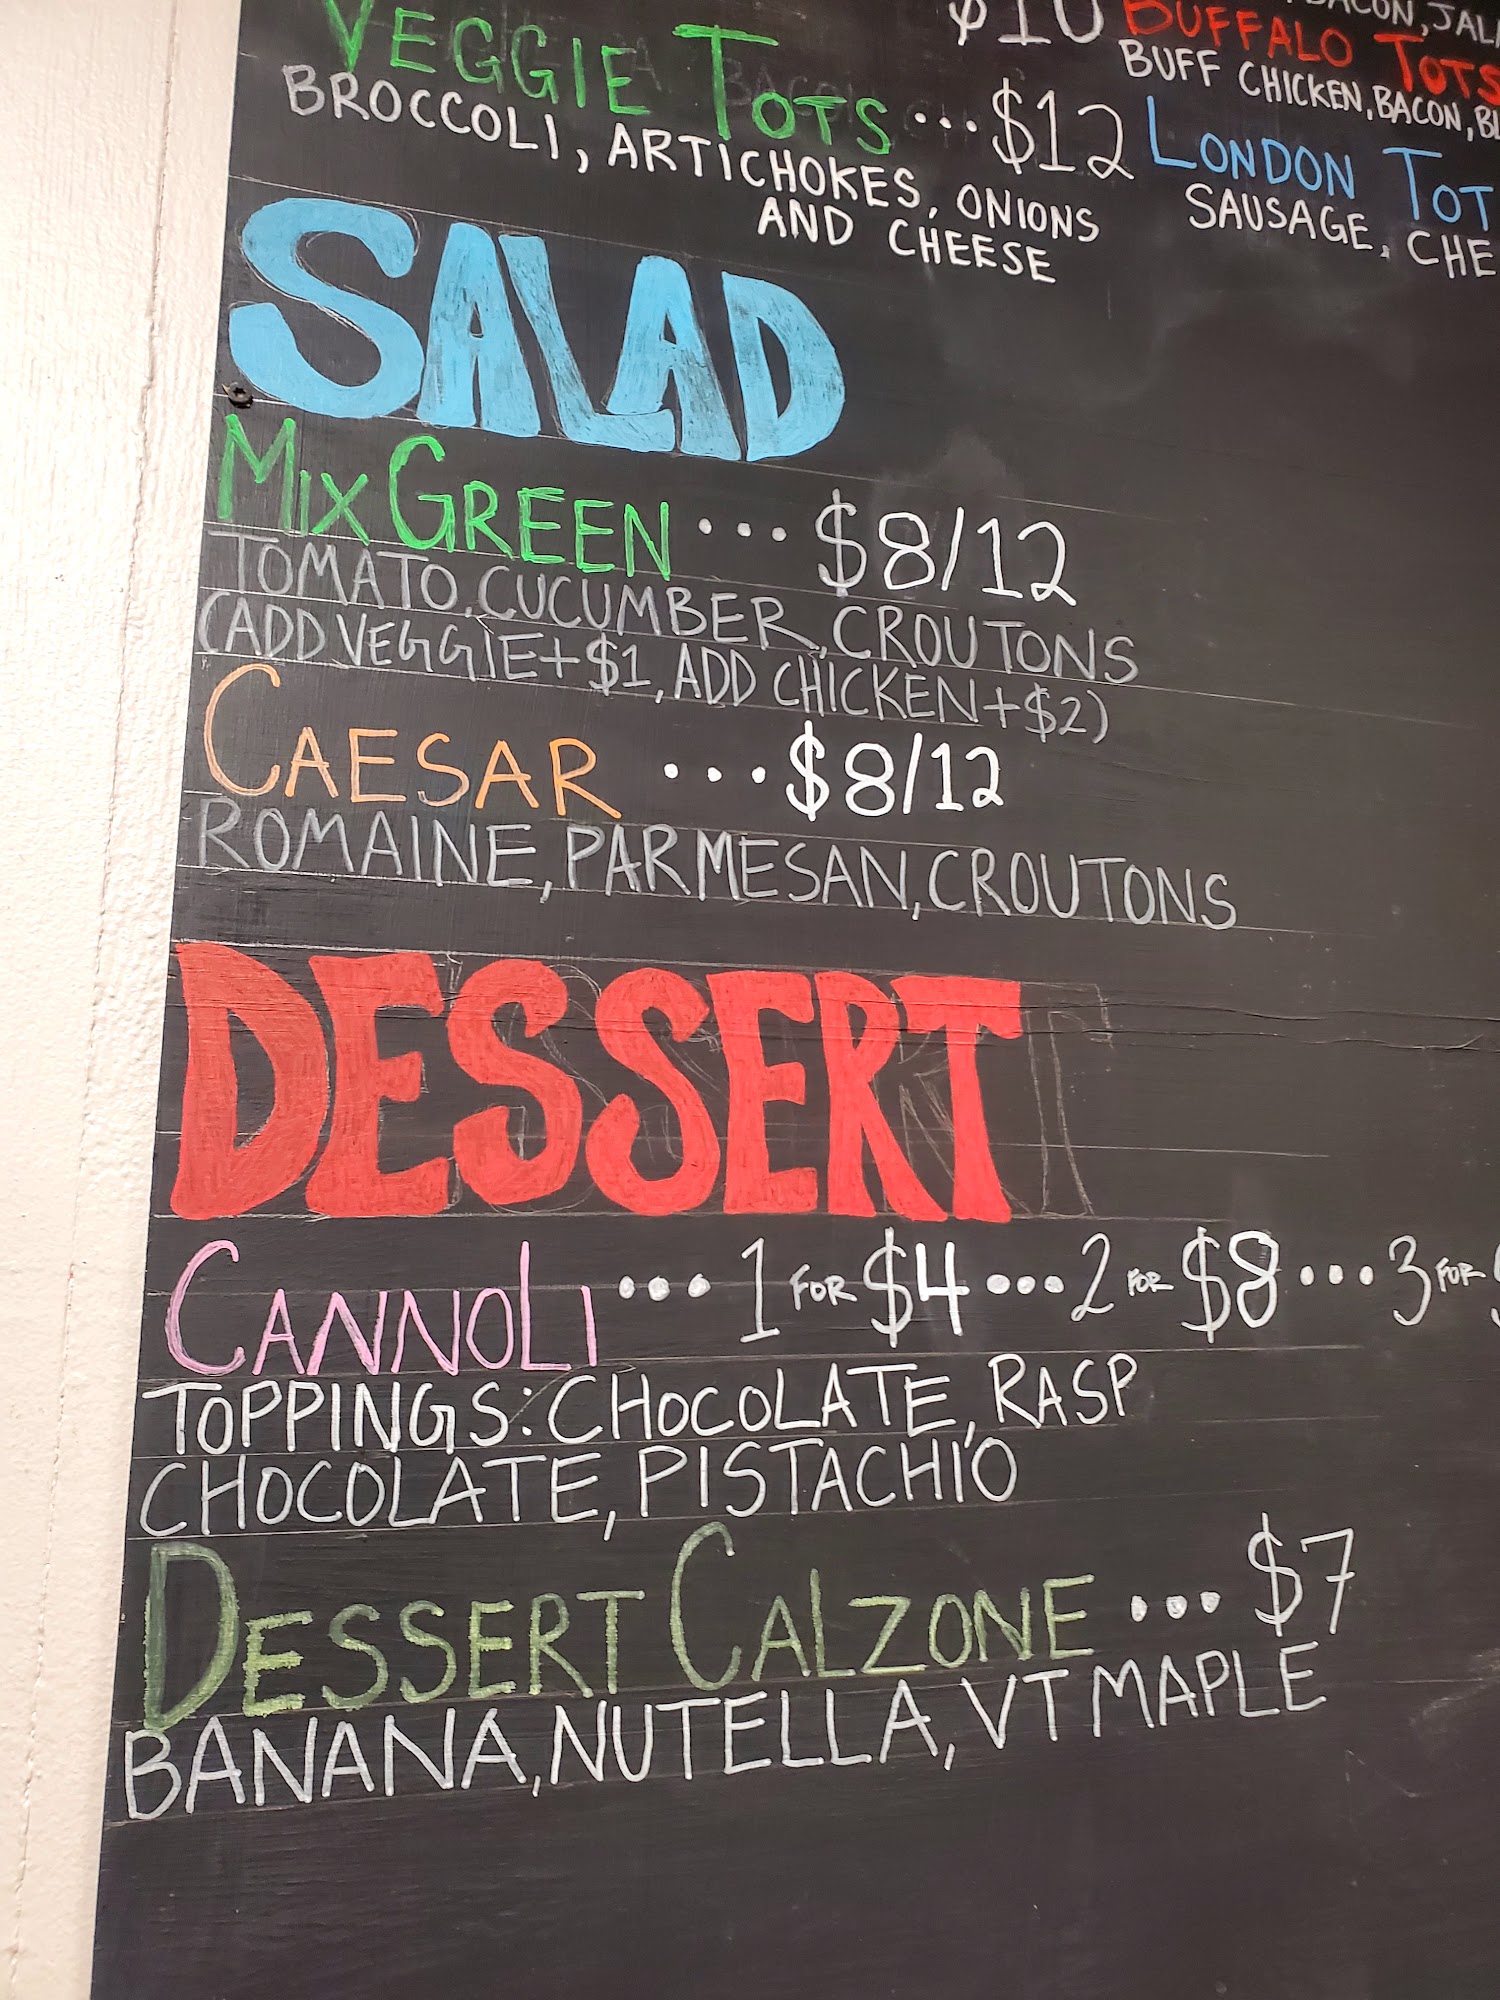 VEGGIE TOTS ... $12
BROCCOLI, ARTICHOKES, ONIONS
AND CHEESE
$10
BACON, JAL
BUFFALO TOTS
BUFF CHICKEN, BACON, BL
LONDON TOT
SAUSAGE, CHE
SALAD
MIX GREEN ... $8/12
TOMATO, CUCUMBER, CROUTONS
(ADD VEGGIE+$1, ADD CHICKEN+$2)
CAESAR ... $8/12
ROMAINE, PARMESAN, CROUTONS
DESSERT
CANNOLI ... 1 FOR $4 ... 2 FOR $8 ... 3 FOR
TOPPINGS: CHOCOLATE, RASP
CHOCOLATE, PISTACHIO
DESSERT CALZONE ... $7
BANANA, NUTELLA, VT MAPLE